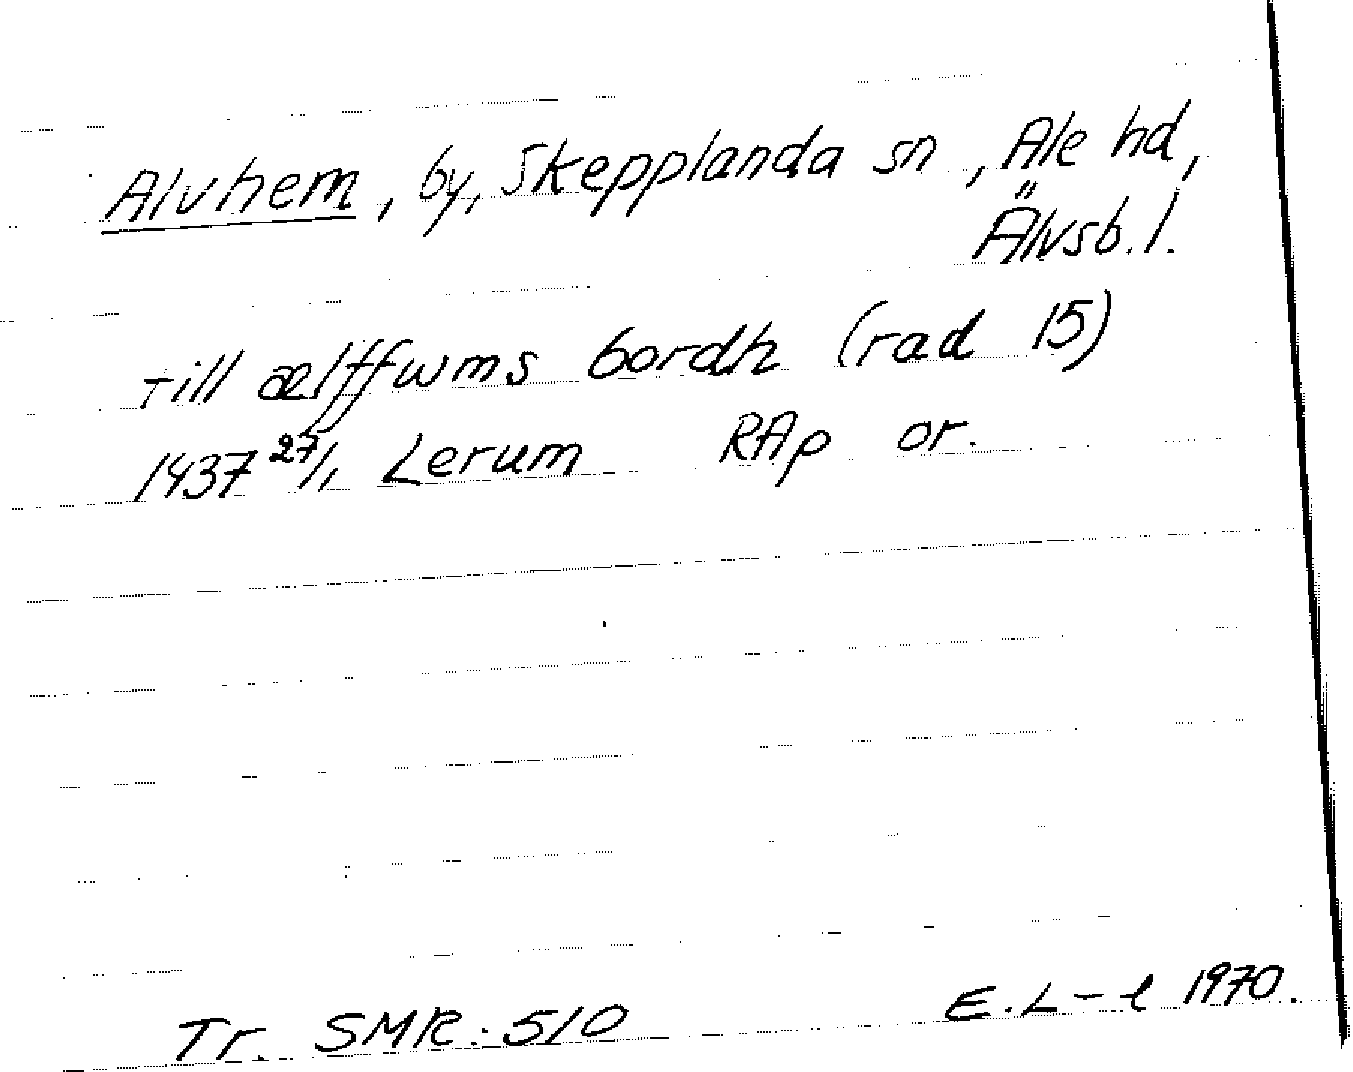 Alvhem, by, Skepplanda sn, Ale hd,
Älvsb. l.
Till ælffwms bordh (rad 15)
1437 27/1 Lerum RAp or.
Tr. SMR: 510 E. L-l 1970.